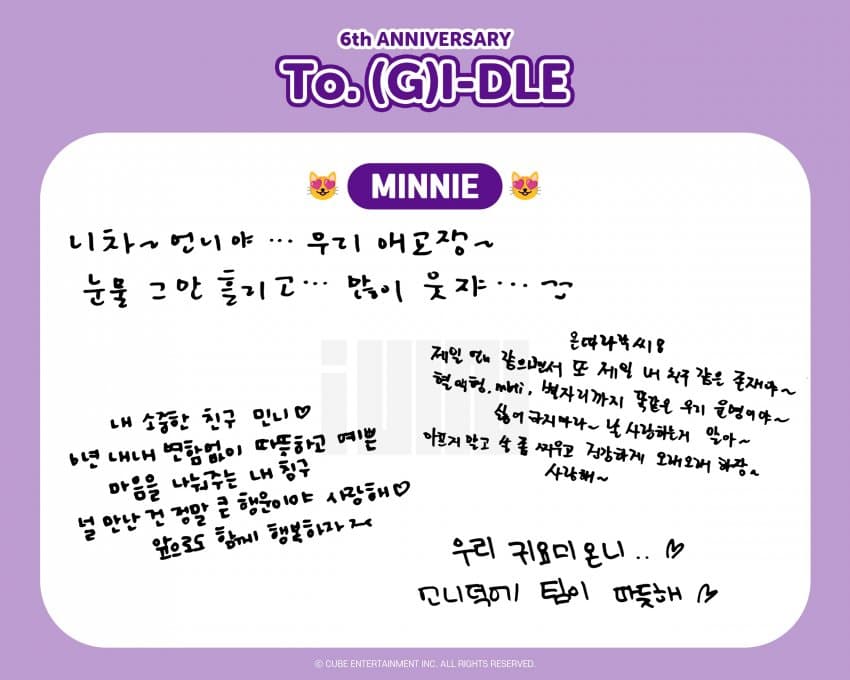 6th ANNIVERSARY
To. (G)I-DLE
MINNIE
니차~ 언니야… 우리 애교쟁~
눈물 그만 흘리고… 많이 웃쟈…
내 소중한 친구 민니♡
6년 내내 변함없이 따뜻하고 예쁜
마음을 나눠주는 내 친구
널 만난 건 정말 큰 행운이야 사랑해♡
앞으로도 함께 행복하자
제일 같으면서 또 제일 내 친구 같은 존재야~
혈액형, mbti, 별자리까지 똑같은 우리 운명이야~
싫어 하지마라~ 날 사랑하는거 알아~
아프지 말고 살 좀 찌우고 건강하게 오래오래 하장~
사랑해~
우리 귀요미 온니.. ♡
모니덕에 팀이 따듯해 ♡
ⓒ CUBE ENTERTAINMENT INC. ALL RIGHTS RESERVED.